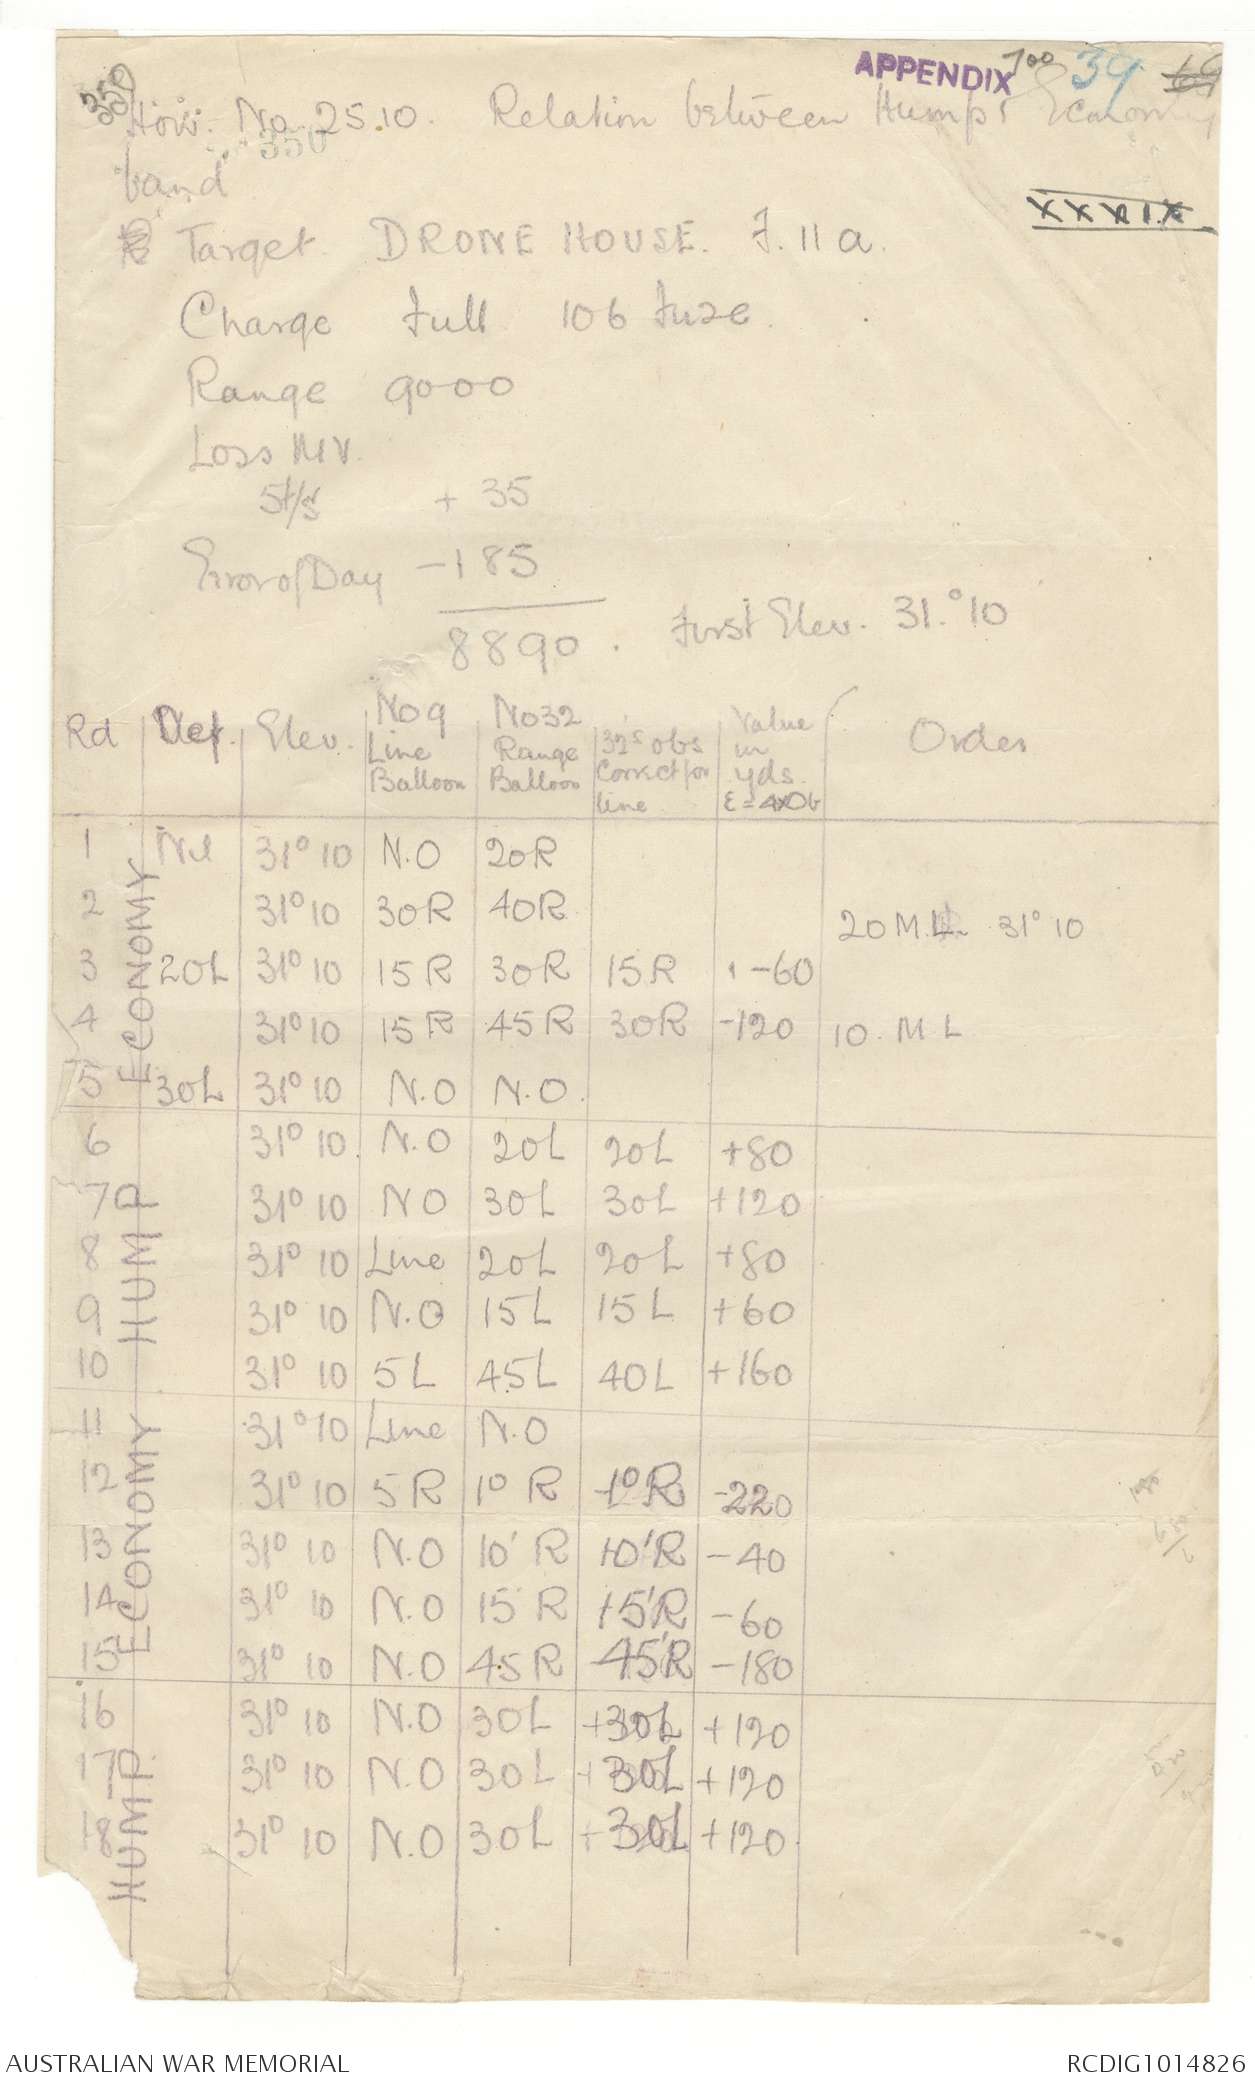 APPENDIX 700 39
350
How. No. 2510. Relation between Hump & Economy
350
band
XXXIX
Target. DRONE HOUSE. J. 11 a.
Charge Full 106 Fuze.
Range 9000
Loss M V.
5 f/s + 35
Error of Day - 185
8890. First Elev. 31.° 10
Rd | Def. | Elev. | No 9 Line Balloon | No 32 Range Balloon | 32's obs Correct for line | Value in yds. E = 4xOb | Order
ECONOMY
1 | Nil | 31° 10 | N.O | 20R
2 | | 31° 10 | 30R | 40R | | | 20 M.L. 31° 10
3 | 20L | 31° 10 | 15 R | 30R | 15 R | -60
4 | | 31° 10 | 15 R | 45 R | 30R | -120 | 10. M L
5 | 30L | 31° 10 | N.O | N.O.
HUMP
6 | | 31° 10 | N.O | 20L | 20L | +80
7 | | 31° 10 | NO | 30L | 30L | +120
8 | | 31° 10 | Line | 20L | 20L | +80
9 | | 31° 10 | N.O | 15L | 15 L | +60
10 | | 31° 10 | 5 L | 45L | 40L | +160
ECONOMY
11 | | 31° 10 | Line | N.O
12 | | 31° 10 | 5 R | 1° R | 1° R | -220
13 | | 31° 10 | N.O | 10' R | 10' R | -40
14 | | 31° 10 | N.O | 15' R | 15' R | -60
15 | | 31° 10 | N.O | 45 R | 45' R | -180
HUMP
16 | | 31° 10 | N.O | 30L | 30L | +120
17 | | 31° 10 | N.O | 30L | 30L | +120
18 | | 31° 10 | N.O | 30L | 30L | +120
AUSTRALIAN WAR MEMORIAL RCDIG1014826